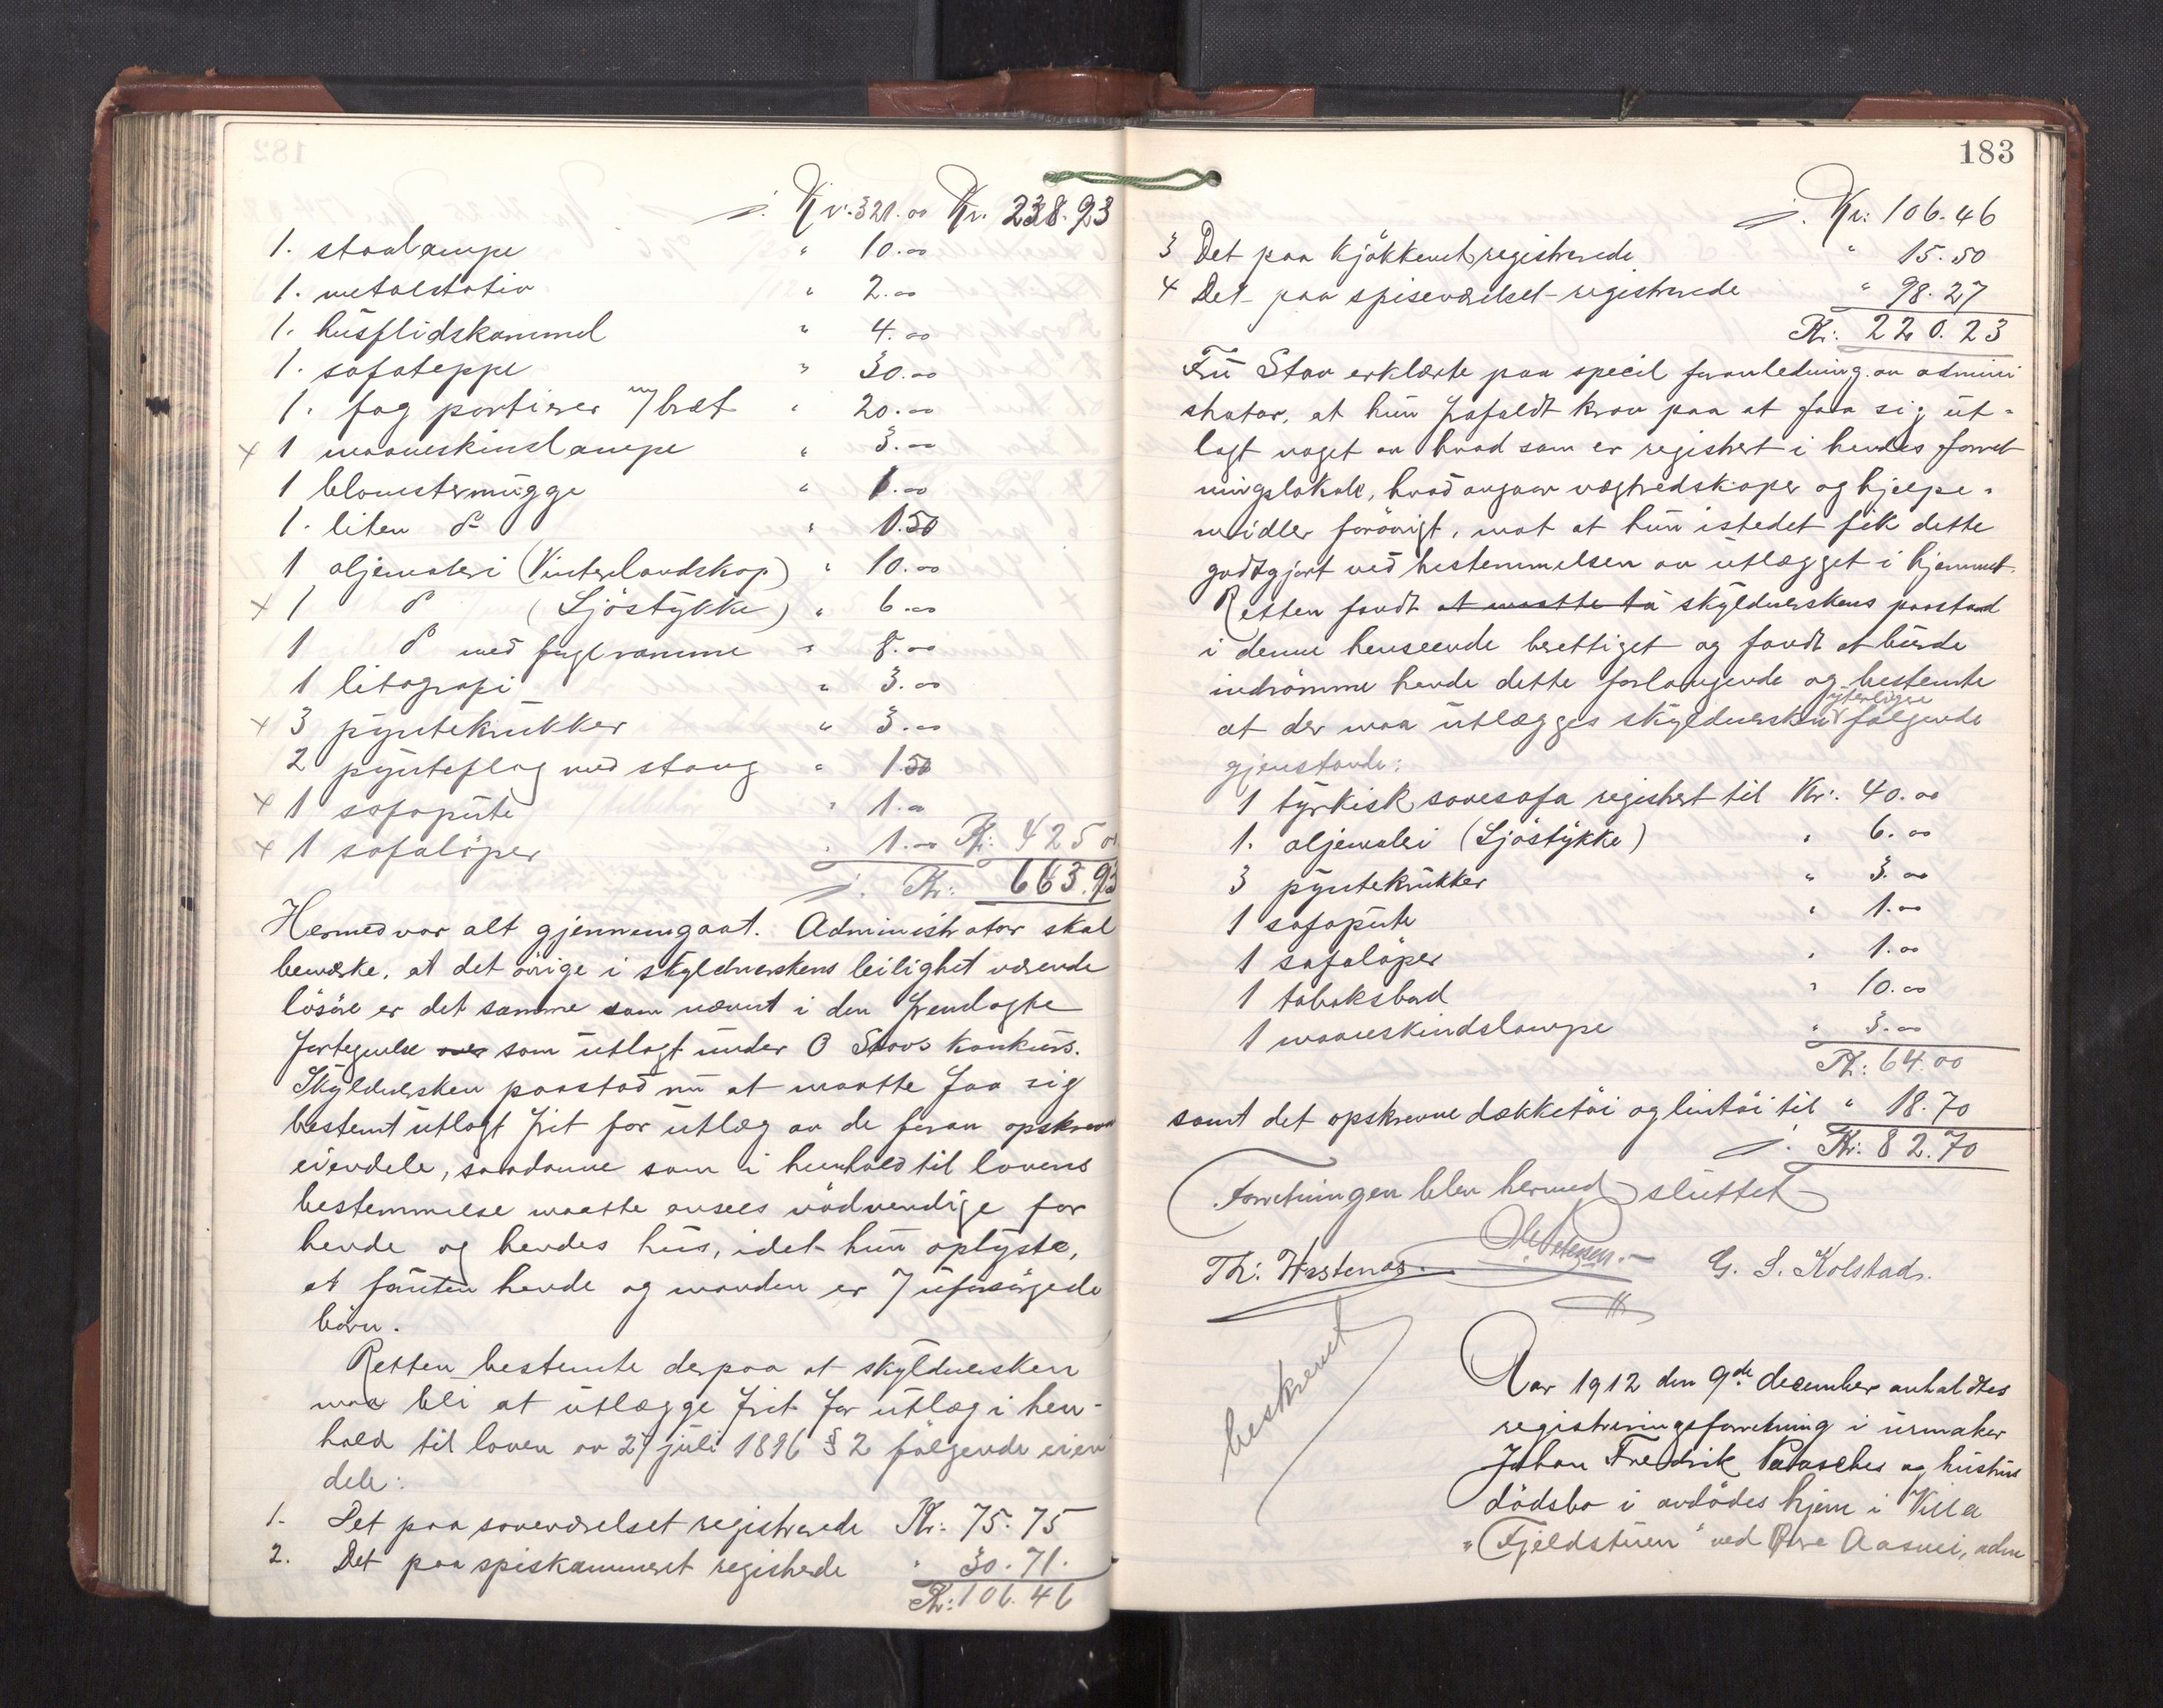 182
i. Kr. 321.00 Kr. 238.93
1. staalampe " 10.00
1. metalstativ " 2.00
1. husflidskammel " 4.00
1. sofateppe " 30.00
1. fag portierer m/bræt " 20.00
x 1 maaneskinslampe " 3.00
1 blomstermugge " 1.00
1. liten do " 1.50
1 oljemaleri (Vinterlandskap) " 10.00
x 1 do (Sjöstykke) " 6.00
1 do med fugleramme " 8.00
1 litografi " 3.00
x 3 pyntekrukker " 3.00
2 pynteflag med stang " 1.50
x 1 sofapute " 1.00
x 1 sofalöper " 1.00 Kr: 425 00
i. Kr: 663.93
Hermed var alt gjennemgaat. Administrator skal
bemerke, at det övrige i skyldnerskens leilighet værende
lösöre er det samme som nævnt i den fremlagte
fortegnelse over som utlagt under O Stavs konkurs.
Skyldnersken paastod nu at maatte faa sig
bestemt utlagt frit for utlæg av de foran opskrevne
eiendele, saadanne som i henhold til lovens
bestemmelse maatte ansees nödvendige for
hende og hendes hus, idet hun oplyste,
at foruten hende og manden er 7 uforsörgede
börn.
Retten bestemte derpaa at skyldnersken
maa bli at utlægge frit for utlæg i hen-
hold til loven av 27 juli 1896 § 2 fölgende eien
dele:
1. Det paa soveværelset registrerede Kr. 75.75
2. Det paa spiskammeret registrerede " 30.71.
Kr: 106.46
183
i. Kr: 106.46
3 Det paa kjökkenet registrerede " 15.50
4 Det paa spiseværelset registrerede " 98.27
Kr: 220.23
Fru Stav erklærte paa speciel foranledning av admini
strator, at hun frafaldt krav paa at faa sig ut-
lagt noget av hvad som er registrert i hendes forret
ningslokale, hvad angaar vegtredskaper og hjelpe-
midler forövrigt, mot at hun istedet fik dette
godtgjort ved bestemmelsen av utlægget i hjemmet.
Retten fandt at maatte ta skyldnerskens paastand
i denne henseende berettiget og fandt at burde
indrömme hende dette forlangende og bestemte
at der maa utlægges skyldnersken ytterligere fölgende
gjenstande:
1 tyrkisk sovesofa registrert til Kr. 40.00
1. oljemaleri (Sjöstykke) " 6.00
3 pyntekrukker " 3.00
1 sofapute " 1.00
1 sofalöper " 1.00
1 tobaksbord " 10.00
1 maaneskindslampe " 3.00
Kr: 64.00
samt det opskrevne dækketöi og lintöi til " 18.70
i. Kr: 82.70
Forretningen blev hermed sluttet
Th: Westenas. G. S. Kolstad.
beskrevet
Aar 1912 den 9de december anholdtes
registreringsforretning i urmaker
Johan Fredrik og hustrus
dödsbo i avdödes hjem i Villa
"Fjeldstuen" ved Aasvei, adm